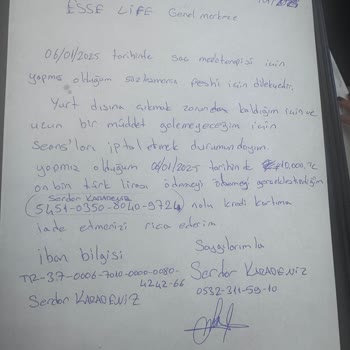 ESSE LIFE Genel merkeze
06/01/2025 tarihinde saç mezoterapisi için
yapmış olduğum sözleşmenin feshi için dilekçedir.
Yurt dışına çıkmak zorunda kaldığım için ve
uzun bir müddet gelemeyeceğim için
Seans'ları iptal etmek durumundayım.
yapmış olduğum 06/01/2025 tarihinde 10.000,TL
on bin türk lirası ödemeyi gerçekleştirdiğim
Serdar KARADENİZ
5451-0350-8040-9724 nolu kredi kartıma
iade etmenizi rica ederim
iban bilgisi
TR-37-0006-7010-0000-0080-
4242-66
Serdar KARADENİZ
Saygılarımla
Serdar KARADENİZ
0532-311-59-10